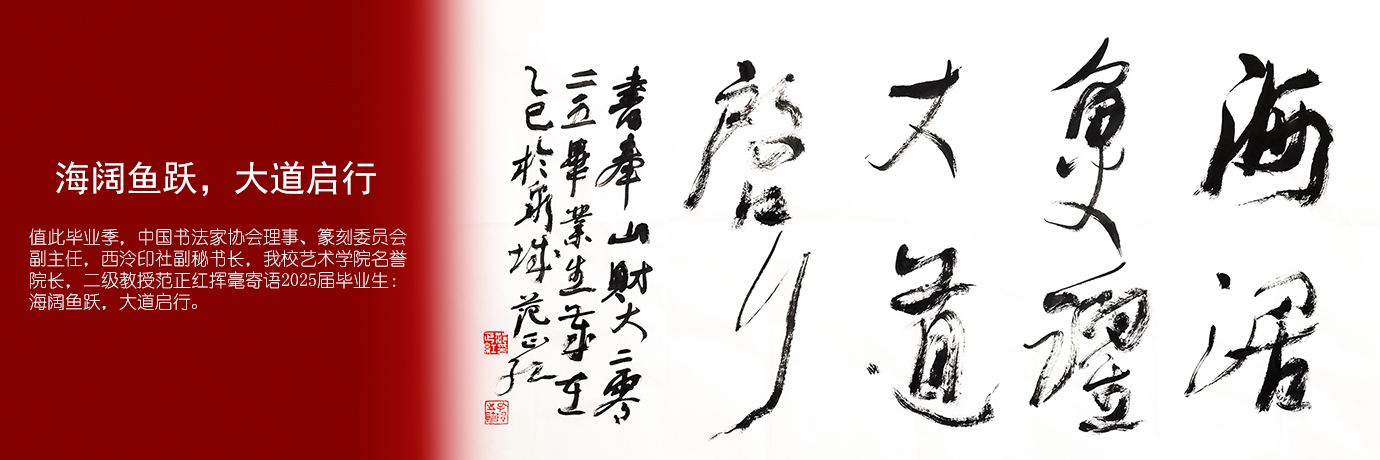 海阔鱼跃，大道启行
值此毕业季，中国书法家协会理事、篆刻委员会
副主任，西泠印社副秘书长，我校艺术学院名誉
院长，二级教授范正红挥毫寄语2025届毕业生：
海阔鱼跃，大道启行。
海濶
魚躍
大道
啓行
書奉山財大二零
二五畢業生歲在
乙巳於泉城范正紅